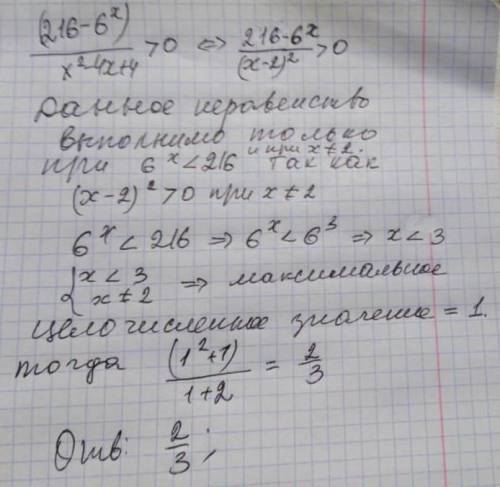 (216-6^x)/(x²-4x+4) > 0 ⇔ (216-6^x)/(x-2)² > 0
Данное неравенство
выполнимо только
при 6^x < 216 и при x≠2. так как
(x-2)² > 0 при x≠2
6^x < 216 ⇒ 6^x < 6³ ⇒ x < 3
{x < 3
x≠2 ⇒ максимальное
целочисленное значение = 1.
тогда (1²+1)/(1+2) = 2/3
Отв: 2/3;